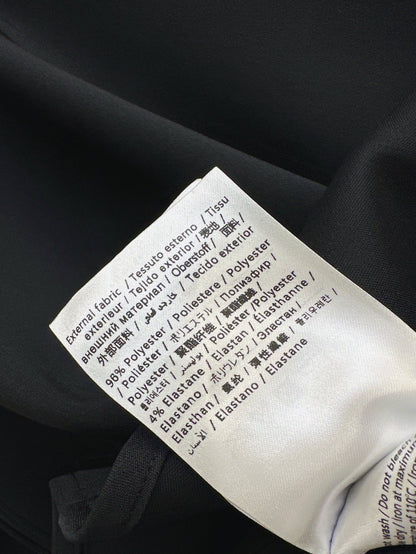 External fabric / Tessuto esterno / Tissu
exterieur / Tejido exterior / 表地 /
внешний материал / Oberstoff / 面料 /
外部面料 / قماش خارجي / Tecido exterior
96% Polyester / Poliestere / Polyester
/ Poliéster / ポリエステル / Полиэфир /
Polyester / 聚脂纖維 / 聚酯纖維 /
폴리에스터 / بوليستر / Poliéster Polyester
4% Elastane / Elastan / Élasthanne /
Elastano / ポリウレタン / Эластан /
Elasthan / 氨纶 / 彈性纖維 / 폴리우레탄 /
الاستان / Elastano / Elastane
wash / Do not bleach
dry / Iron at maximum
of 110°C / Iron